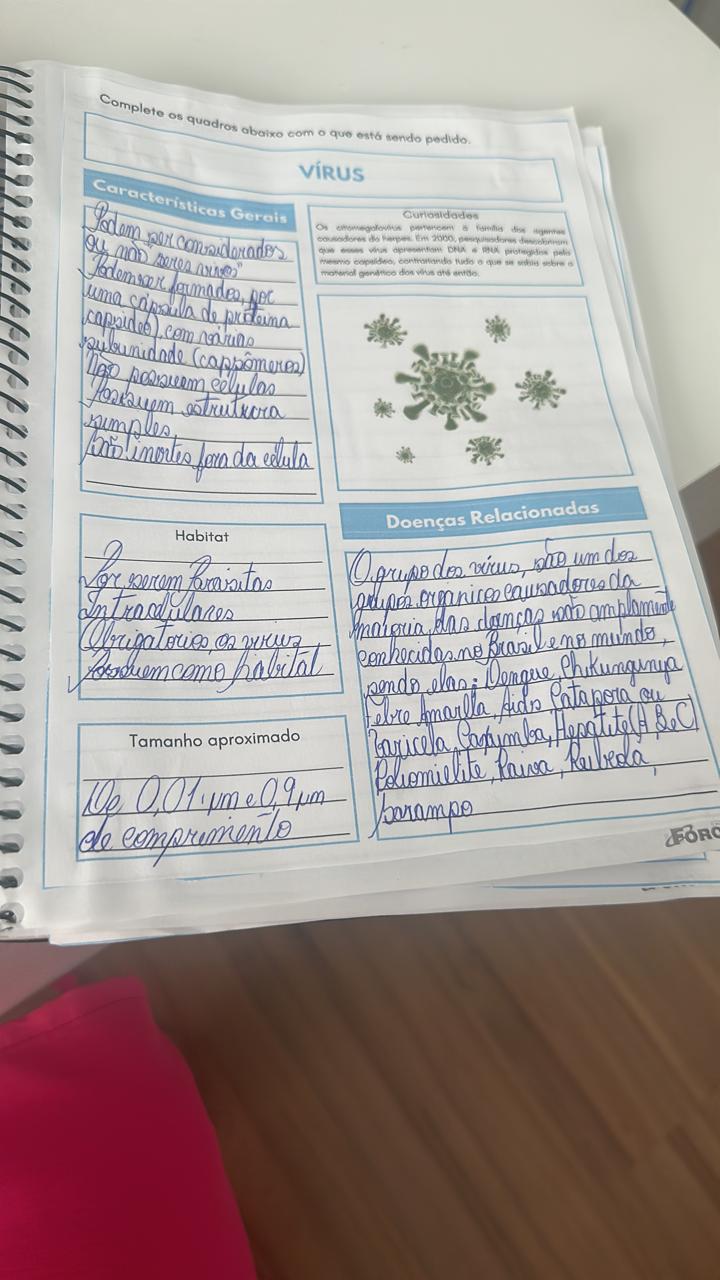 Complete os quadros abaixo com o que está sendo pedido.
VÍRUS
Características Gerais
Podem ser considerados
ou não seres vivos"
Podem ser formados, por
uma cápsula de proteína
capsídeo) com várias
subunidade (cappômeros)
Não possuem células
Possuem estrutura
simples
São inertes fora da célula
Curiosidades
Os citomegalovírus pertencem à família dos agentes
causadores do herpes. Em 2000, pesquisadores descobriram
que esses vírus apresentam DNA e RNA protegidos pelo
mesmo capsídeo, contrariando tudo o que se sabia sobre o
material genético dos vírus até então.
Habitat
Por serem Parasitas
Intracelulares
Obrigatórios, os vírus
possuem como habitat
Tamanho aproximado
De 0,01 µm e 0,9 µm
de comprimento
Doenças Relacionadas
O grupo dos vírus, são um dos
grupos organicos causadores da
maioria das doenças são amplamente
conhecidas no Brasil e no mundo,
sendo elas: Dengue, Chikungunya
Febre Amarela, Aids Catapora ou
Varicela, Caxumba, Hepatite (A, B e C)
Poliomielite, Raiva, Rubeola,
sarampo
FORO